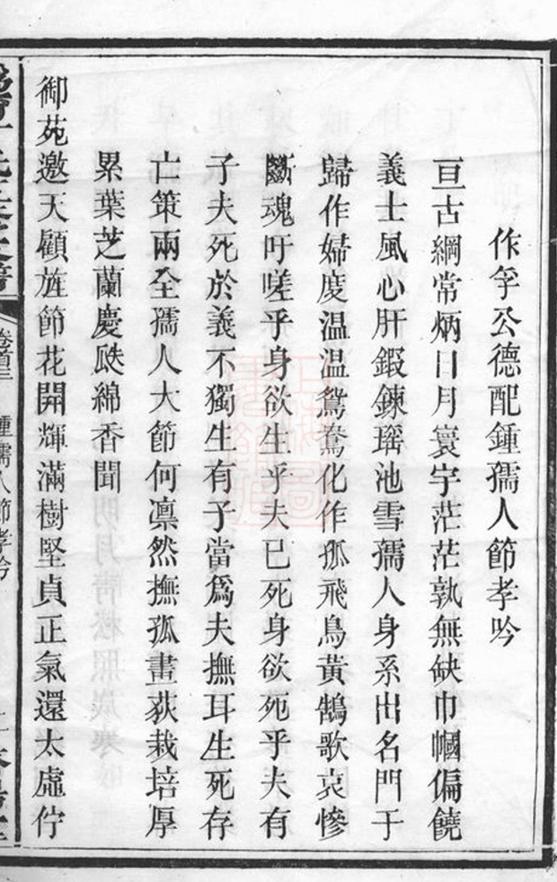 作孚公德配鍾孺人節孝吟
亘古綱常炳日月寰宇茫茫孰無缺巾幗偏饒
義士風心肝鍜鍊瑤池雪孺人身系出名門于
歸作婦度溫溫鴛鴦化作孤飛鳥黃鵠歌哀慘
斷魂吁嗟乎身欲生乎夫已死身欲死乎夫有
子夫死於義不獨生有子當爲夫撫耳生死存
亡策兩全孺人大節何凛然撫孤畫荻栽培厚
累葉芝蘭慶瓞綿香聞
御苑邀天顧旌節花開輝滿樹堅貞正氣還太虛佇
卷首三 鍾孺人節孝吟